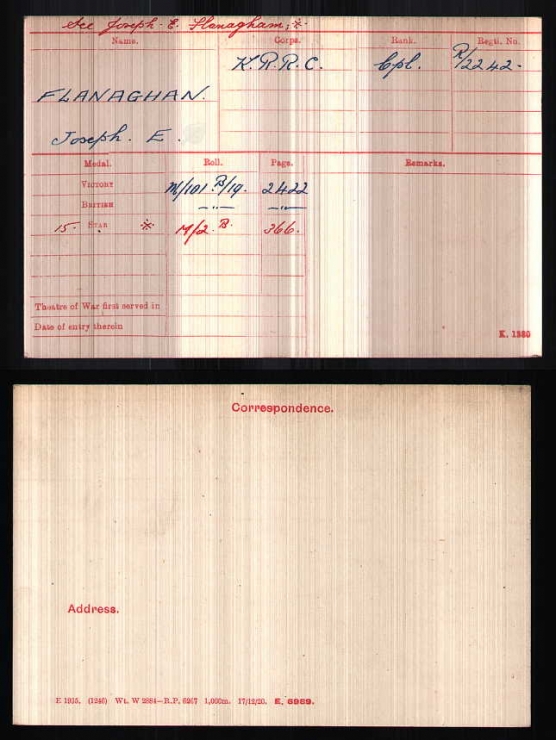 See Joseph. E. Flanagham; ※
Name. Corps. Rank. Regtl. No.
K.R.R.C. Cpl. R/2242.
FLANAGHAN.
Joseph. E.
Medal. Roll. Page. Remarks.
VICTORY M/101 B/19. 2422
BRITISH —"— —"—
15. STAR ※ M/2. B. 366.
Theatre of War first served in
Date of entry therein
K. 1380
Correspondence.
Address.
E 1915. (1246) Wt. W 2884—R.P. 6247 1,000m. 17/12/20. E, 6989.